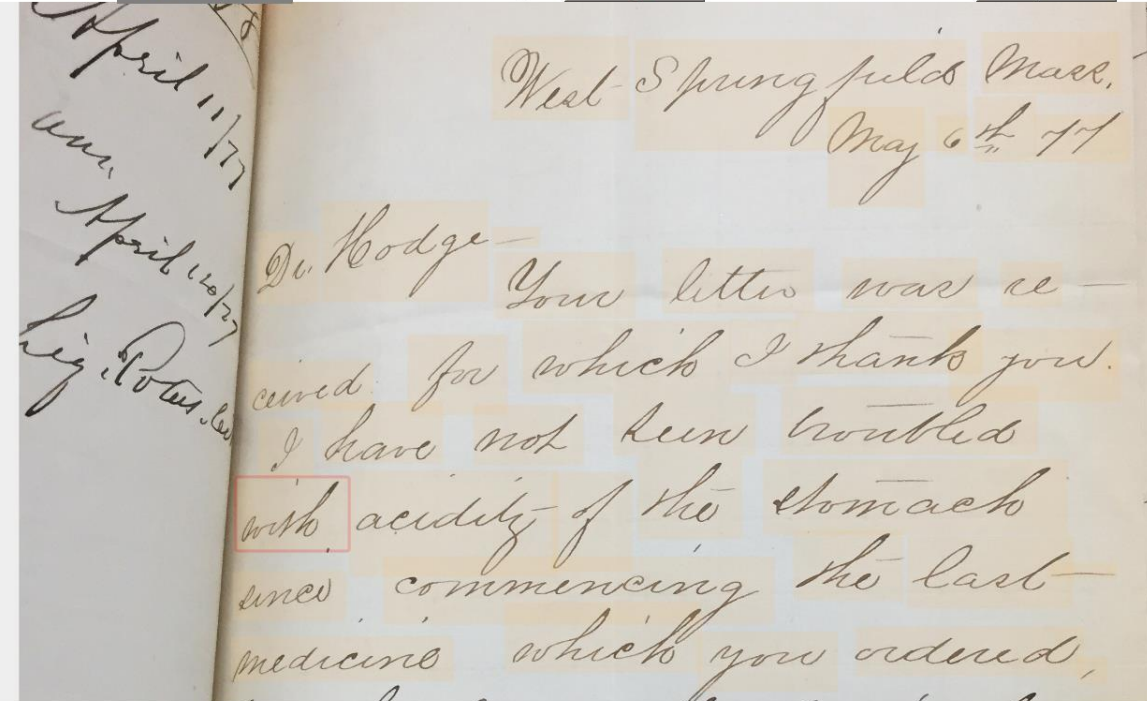 April 11/77
ans.
April 20/77
Liq. Potas.
West Springfield Mass.
May 6th 77
Dr. Hodge —
Your letter was re —
ceived for which I thank you.
I have not been troubled
with acidity of the stomach
since commencing the last
medicine which you ordered,